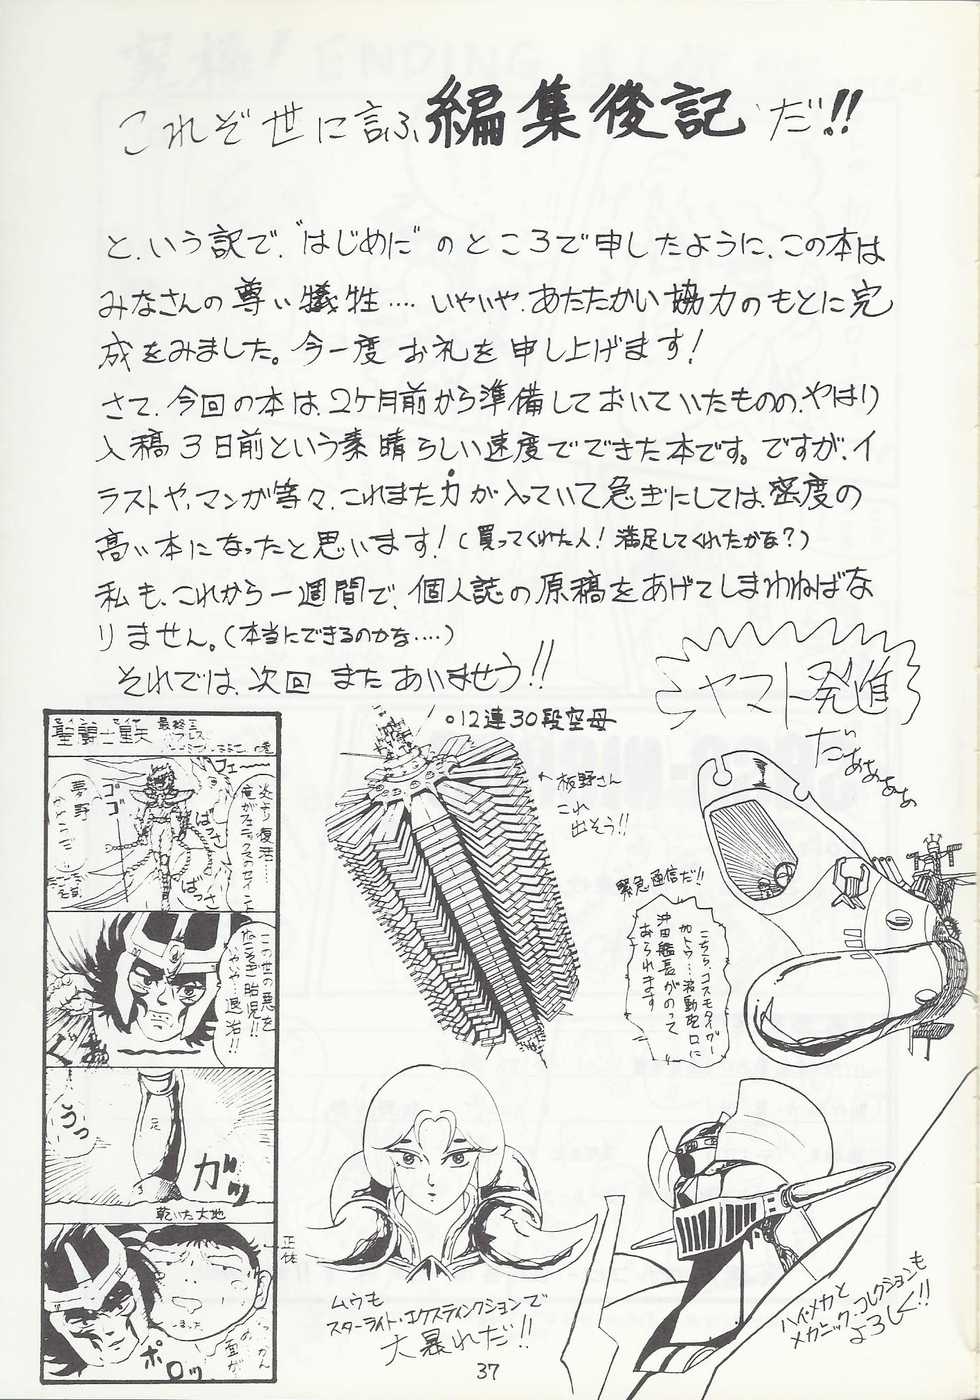 これぞ世に言ふ編集後記だ!!
と、いう訳で、"はじめに"のところで申したように、この本は
みなさんの尊い犠牲‥‥いやいや、あたたかい協力のもとに完
成をみました。今一度お礼を申し上げます!
さて、今回の本は、2ケ月前から準備しておいていたものの、やはり
入稿3日前という素晴らしい速度でできた本です。ですが、イ
ラストや、マンガ等々、これまた力が入っていて急ぎにしては、密度の
高い本になったと思います!(買ってくれた人!満足してくれたかな?)
私も、これから一週間で、個人誌の原稿をあげてしまわねばな
りません。(本当にできるのかな‥‥)
それでは、次回またあいませう!!
ヤマト発進
だぁぁぁぁぁ
○12連30段空母
←板野さん
これ
出そう!!
緊急通信だ!!
こちら、コスモタイガー
加トウ…波動砲口に
沖田艦長がのって
おられます
聖闘士星矢
フェー
炎より復活……
ゴゴゴ
ばっ
ばっ
この世の悪を
退治!!
ぐぉ
うっ
ガッ
乾いた大地
正体
ポロッ
ムウも
スターライト・エクスティンクションで
大暴れだ!!
ハイ・メカと
メカニック・コレクションも
よろしく!!
37